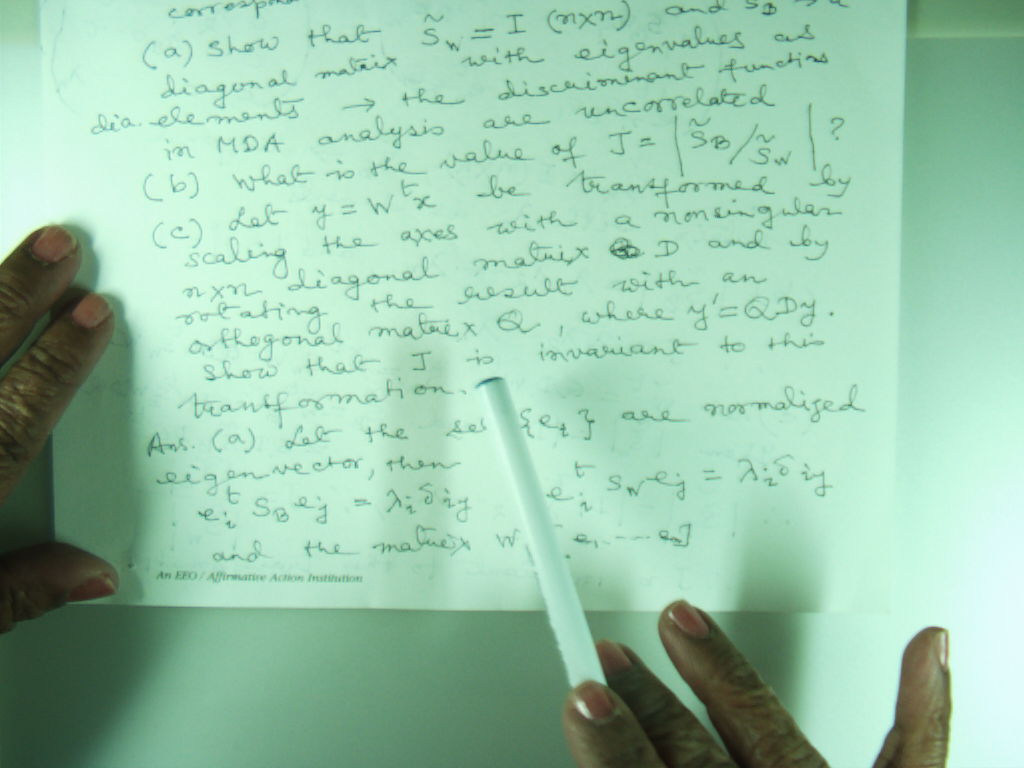 (a) Show that S̃_W = I (n×n) and S_B
diagonal matrix with eigenvalues as
dia. elements → the discriminant functions
in MDA analysis are uncorrelated
(b) What is the value of J = |S̃_B / S̃_W| ?
(c) Let y = W^t x be transformed by
scaling the axes with a nonsingular
n×n diagonal matrix D and by
rotating the result with an
orthogonal matrix Q, where y' = QDy.
Show that J is invariant to this
transformation.
Ans. (a) Let the {e_i} are normalized
eigenvector, then
e_i^t S_B e_j = λ_i δ_ij e_i^t S_W e_j = λ_i δ_ij
and the matrix W e_1 ---- e_n]
An EEO / Affirmative Action Institution